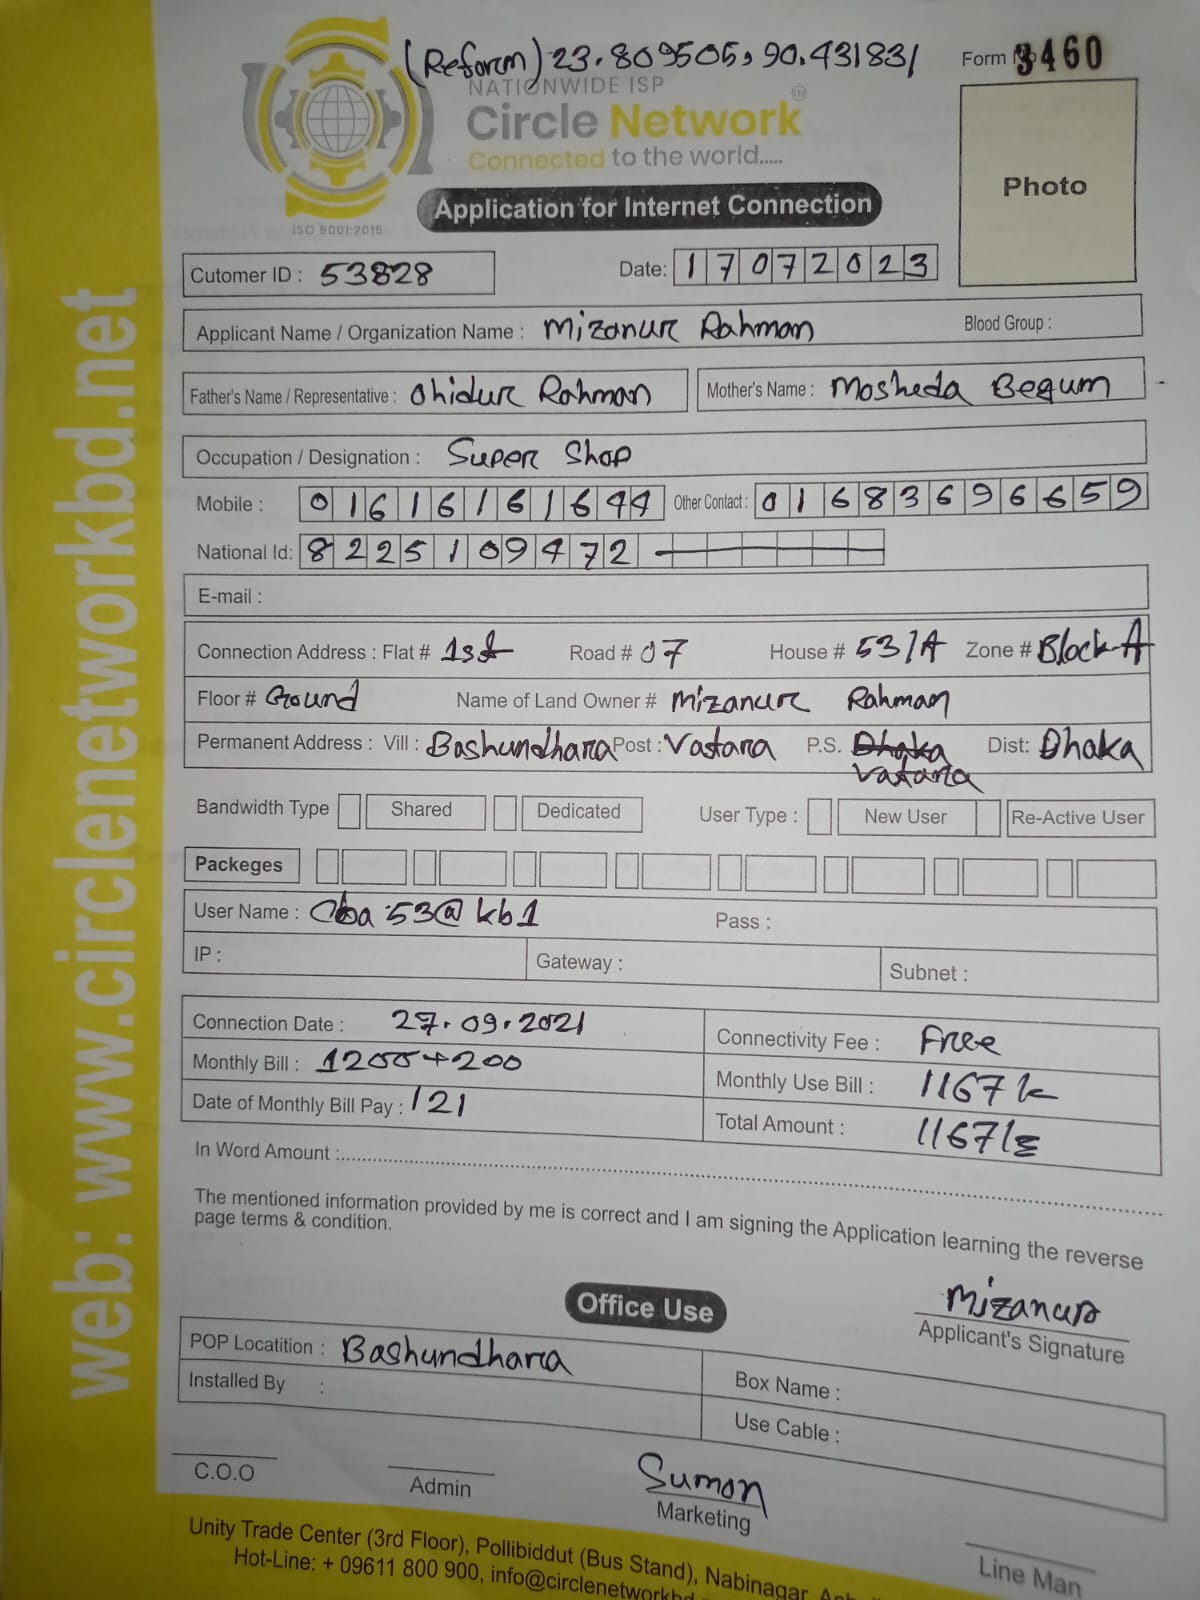 (Reform) 23.809505, 90.431831
Form No 3460
NATIONWIDE ISP
Circle Network TM
Connected to the world.....
ISO 9001:2015
Application for Internet Connection
Photo
Cutomer ID : 53828
Date: 17072023
Applicant Name / Organization Name : Mizanur Rahman Blood Group :
Father's Name / Representative : Ohidur Rahman Mother's Name : Mosheda Begum
Occupation / Designation : Super Shop
Mobile : 01616161644 Other Contact : 01683696659
National Id: 8225109472
E-mail :
Connection Address : Flat # 1st Road # 07 House # 53/A Zone # Block-A
Floor # Ground Name of Land Owner # Mizanur Rahman
Permanent Address : Vill : Bashundhara Post : Vatara P.S. Dhaka Dist: Dhaka
Vatara
Bandwidth Type Shared Dedicated User Type : New User Re-Active User
Packeges
User Name : Cba 53@kb1 Pass :
IP : Gateway : Subnet :
Connection Date : 27.09.2021 Connectivity Fee : Free
Monthly Bill : 1200+200 Monthly Use Bill : 1167
Date of Monthly Bill Pay : 121 Total Amount : 1167
In Word Amount :
The mentioned information provided by me is correct and I am signing the Application learning the reverse
page terms & condition.
Mizanur
Applicant's Signature
Office Use
POP Locatition : Bashundhara Box Name :
Installed By : Use Cable :
C.O.O
Admin
Sumon
Marketing
Line Man
Unity Trade Center (3rd Floor), Pollibiddut (Bus Stand), Nabinagar,
Hot-Line: + 09611 800 900, info@circlenetworkbd
web: www.circlenetworkbd.net